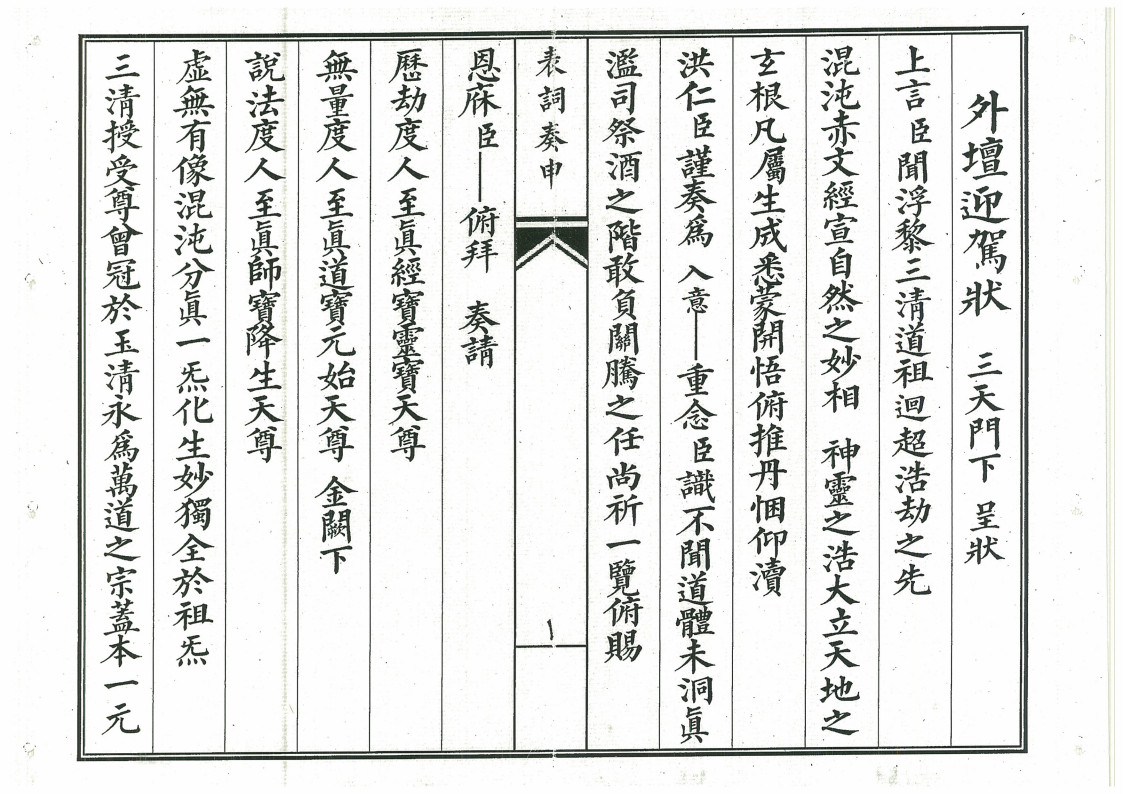 外壇迎駕狀 三天門下 呈狀
上言臣聞浮黎三清道祖迴超浩劫之先
混沌赤文經宣自然之妙相 神靈之浩大立天地之
玄根凡屬生成悉蒙開悟俯推丹悃仰瀆
洪仁臣謹奏爲 入意——重念臣識不聞道體未洞眞
濫司祭酒之階敢負關騰之任尚祈一覽俯賜
表詞奏申 一
恩庥臣——俯拜 奏請
歷劫度人至眞經寶靈寶天尊
無量度人至眞道寶元始天尊 金闕下
說法度人至眞師寶降生天尊
虛無有像混沌分眞一炁化生妙獨全於祖炁
三清授受尊曾冠於玉清永爲萬道之宗蓋本一元